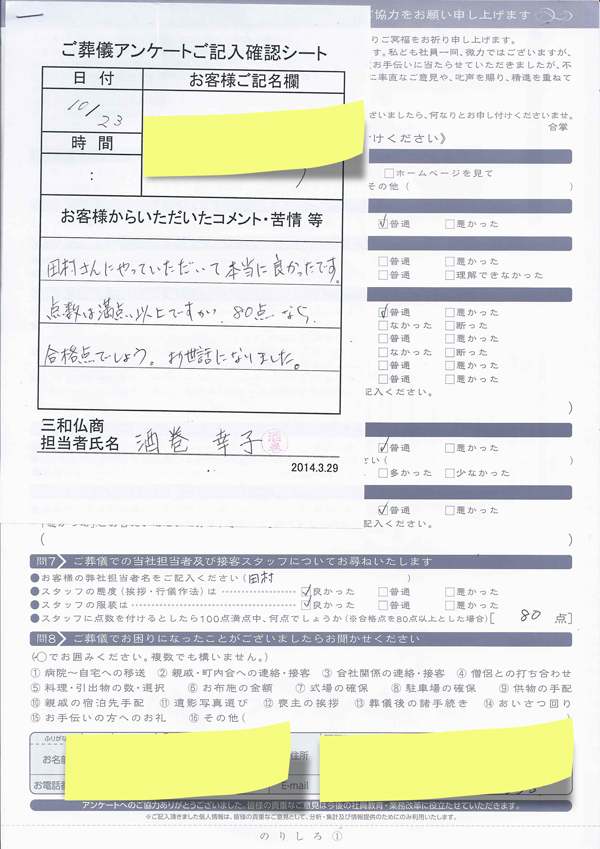 ご協力をお願い申し上げます
ご葬儀アンケートご記入確認シート
日付
お客様ご記名欄
10/23
時間
:
お客様からいただいたコメント・苦情 等
田村さんにやっていただいて本当に良かったです。
点数は満点以上ですが、80点なら、
合格点でしょう。お世話になりました。
三和仏商
担当者氏名 酒巻 幸子 酒巻
2014.3.29
りご冥福をお祈り申し上げます。
す。私ども社員一同、微力ではございますが、
お手伝いに当たらせていただきましたが、不
に率直なご意見や、叱声を賜り、精進を重ねて
ざいましたら、何なりとお申し付けくださいませ。
合掌
けください》
□ホームページを見て
その他(　)
☑普通 □悪かった
□普通 □悪かった
□普通 □理解できなかった
☑普通 □悪かった
□なかった □断った
□普通 □悪かった
□なかった □断った
□普通 □悪かった
記入ください。
)
☑普通 □悪かった
さい(　)
□多かった □少なかった
☑普通 □悪かった
記入ください。
(　)
問7 ご葬儀での当社担当者及び接客スタッフについてお尋ねいたします
●お客様の弊社担当者名をご記入ください(田村　)
●スタッフの態度(挨拶・行儀作法)は ☑良かった □普通 □悪かった
●スタッフの服装は ☑良かった □普通 □悪かった
●スタッフに点数を付けるとしたら100点満点中、何点でしょうか(※合格点を80点以上とした場合)[80 点]
問8 ご葬儀でお困りになったことがございましたらお聞かせください
(○でお囲みください。複数でも構いません。)
①病院→自宅への移送 ②親戚・町内会への連絡・接客 ③会社関係の連絡・接客 ④僧侶との打ち合わせ
⑤料理・引出物の数・選択 ⑥お布施の金額 ⑦式場の確保 ⑧駐車場の確保 ⑨供物の手配
⑩親戚の宿泊先手配 ⑪遺影写真選び ⑫喪主の挨拶 ⑬葬儀後の諸手続き ⑭あいさつ回り
⑮お手伝いの方へのお礼 ⑯その他(　)
ふりがな
お名前
住所
お電話番
E-mail
アンケートへのご協力ありがとうございました。皆様の貴重なご意見は今後の社員教育・業務改革に役立たせていただきます。
※ご記入頂きました個人情報は、皆様の貴重なご意見として、分析・集計及び情報提供のためにのみ利用いたします。
のりしろ①